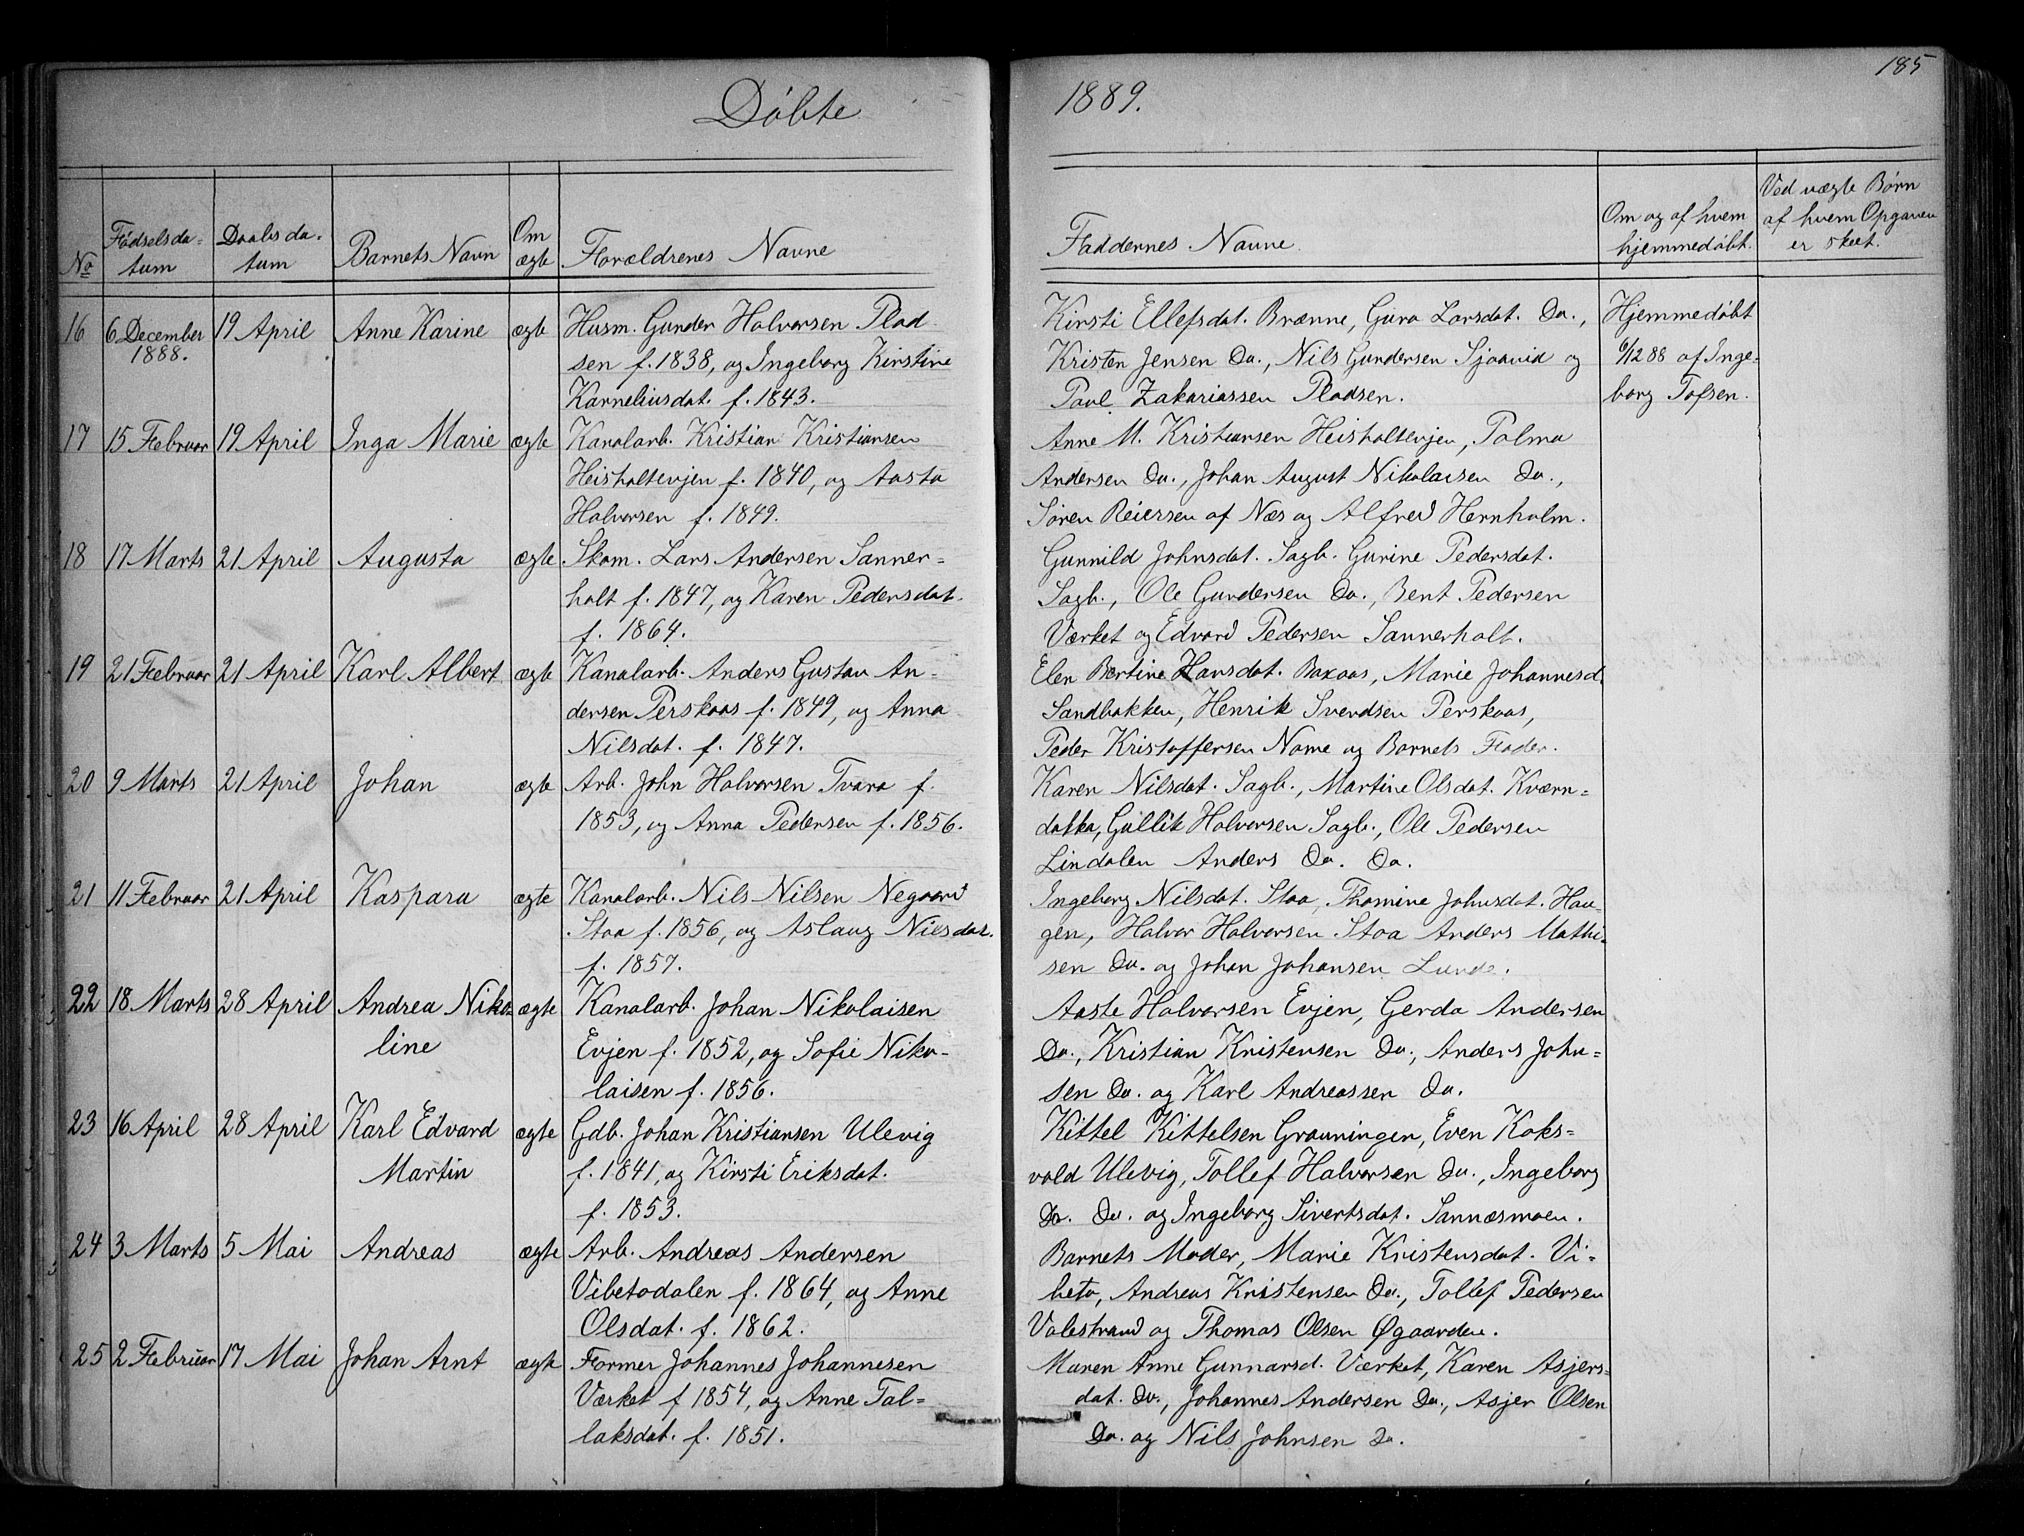 Döbte
1889.
185
No
Födselsda-
tum
Daabsda-
tum
Barnets Navn
Om
ægte
Forældrenes Navne
Faddernes Navne
Om og af hvem
hjemmedöbt.
Ved uægte Börn
af hvem Opgaven
er skeet.
16 6 December 19 April Anne Karine ægte Husm. Gunder Halvorsen Plad- Kirsti Ellefsdat. Brænne, Guro Larsdat. Do., Hjemmedöbt
1888. sen f. 1838, og Ingeborg Kirstine Kristen Jensen Do., Nils Gundersen Sjaavid og 6/12 88 af Inge-
Karneliusdat. f. 1843. Paul Zakariassen Pladsen. borg Tofsen.
17 15 Februar 19 April Inga Marie ægte Kanalarb. Kristian Kristiansen Anne M. Kristiansen Heisholtevjen, Palma
Heisholtevjen f. 1840, og Aasta Andersen Do., Johan August Nikolaisen Do.,
Halvorsen f. 1849. Sören Reiersen af Næs og Alfred Hernholm.
18 17 Marts 21 April Augusta ægte Skom. Lars Andersen Sanner- Gunnild Johnsdat. Sagb. Gurine Pedersdat.
holt f. 1847, og Karen Pedersdat. Sagb., Ole Gundersen Do., Bent Pedersen
f. 1864. Værket og Edvard Pedersen Sannerholt.
19 21 Februar 21 April Karl Albert ægte Kanalarb. Anders Gustav An- Elen Bertine Hansdat. Baxaas, Marie Johannesd.
dersen Perskaas f. 1849, og Anna Sandbakken, Henrik Svendsen Perskaas,
Nilsdat. f. 1847. Peder Kristoffersen Nome og Barnets Fader.
20 9 Marts 21 April Johan ægte Arb. John Halvorsen Tvara f. Karen Nilsdat. Sagb., Martine Olsdat. Kværn-
1853, og Anna Pedersen f. 1856. dokka, Gullik Halvorsen Sagb., Ole Pedersen
Lindalen Anders Do. Do.
21 11 Februar 21 April Kaspara ægte Kanalarb. Nils Nilsen Negaard Ingeborg Nilsdat. Staa, Thomine Johnsdat. Hau-
Staa f. 1856, og Aslaug Nilsdat. gen, Halvor Halvorsen Staa Anders Mathi-
f. 1857. sen Do. og Johan Johansen Lunde.
22 18 Marts 28 April Andrea Niko- ægte Kanalarb. Johan Nikolaisen Aaste Halvorsen Evjen, Gerda Andersen
line Evjen f. 1852, og Sofie Niko- Do., Kristian Kristensen Do., Anders John-
laisen f. 1856. sen Do. og Karl Andreassen Do.
23 16 April 28 April Karl Edvard ægte Gdb. Johan Kristiansen Ulevig Kittel Kittelsen Grauningen, Even Koks-
Martin f. 1841, og Kirsti Eriksdat. vold Ulevig, Tollef Halvorsen Do., Ingeborg
f. 1853. Do. Do. og Ingeborg Sivertsdat. Sannæsmoen.
24 3 Marts 5 Mai Andreas ægte Arb. Andreas Andersen Barnets Moder, Marie Kristensdat. Vi-
Vibetodalen f. 1864, og Anne beto, Andreas Kristensen Do., Tollef Pedersen
Olsdat. f. 1862. Valestrand og Thomas Olsen Øgaarden.
25 2 Februar 17 Mai Johan Arnt ægte Former Johannes Johannesen Maren Anne Gunnarsd. Værket, Karen Asjers-
Værket f 1854, og Anne Tal- dat. Do., Johannes Andersen Do., Asjer Olsen
laksdat. f. 1851. Do. og Nils Johnsen Do.